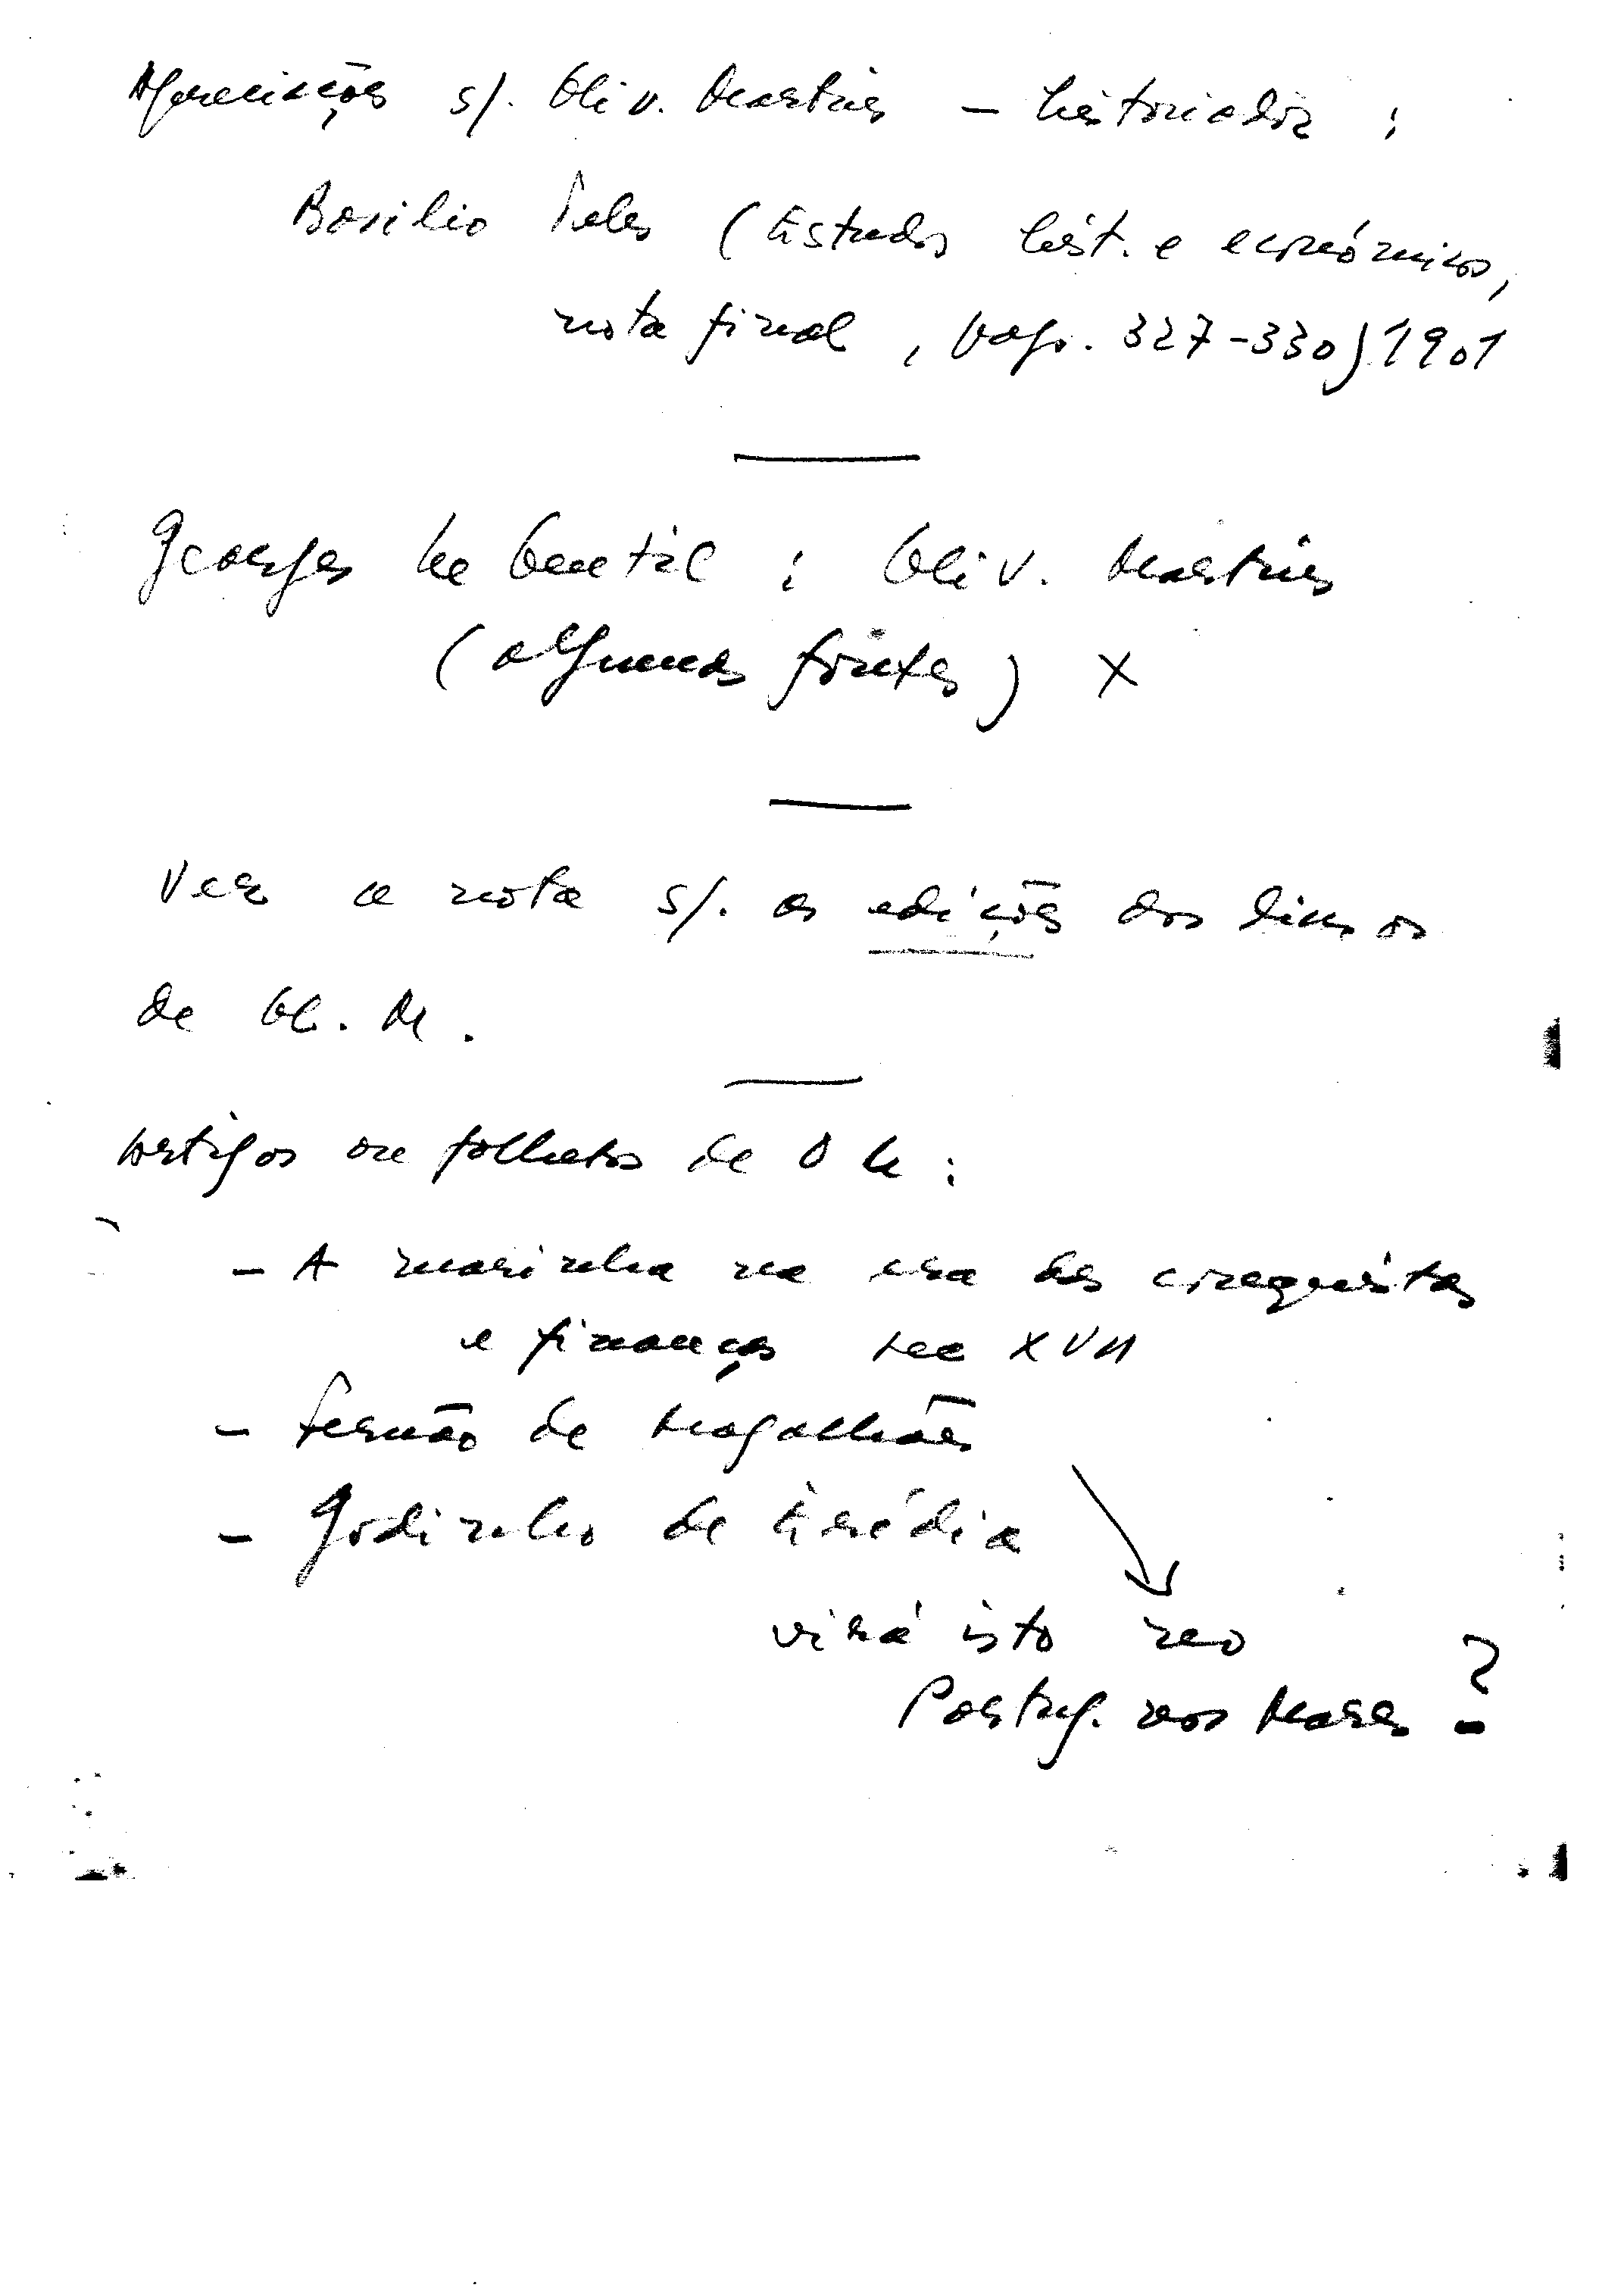 Apreciações s/. Oliv. Martins – historiador :
Basílio Teles (Estudos hist. e económicos,
nota final, pags. 327-330) 1901
Georges Le Gentil : Oliv. Martins
(algumas fontes) X
Ver a nota s/. as edições dos livros
de Ol. M.
Artigos ou folhetos de O M :
– A marinha na era das conquistas
e finanças sec XVII
– Fernão de Magalhães
– Godinho de Erédia
virá isto no
Portug. nos Mares ?